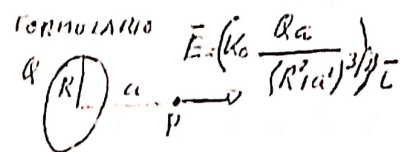 FORMULARIO
E̅ = (K₀ Qa / (R²+a²)^3/2) i̅
Q
R a
P